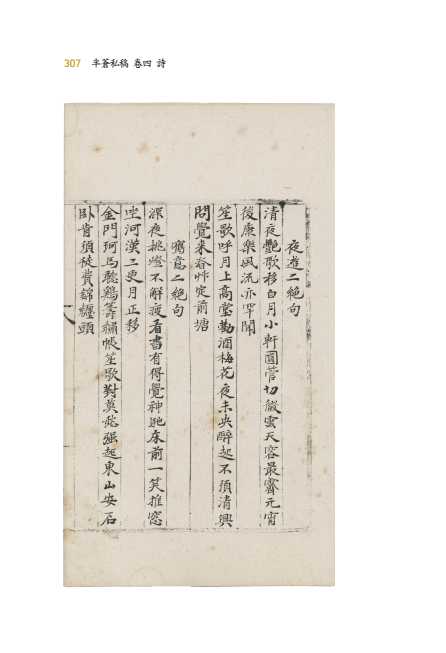 307 半蒼私稿 卷四 詩
夜遊二絕句
清夜艷歌移白月小軒圓菅切微雲天容最霽元宵
後康樂風流亦罕聞
笙歌呼月上高堂勸酒梅花夜未央醉起不須清興
問覺來春艸定前塘
寓意二絕句
深夜挑燈不解疲看書有得覺神馳床前一笑推窓
坐河漢三更月正移
金門珂馬聽鷄籌繡帳笙歌對莫愁强起東山安石
卧肯須徒費錦纏頭